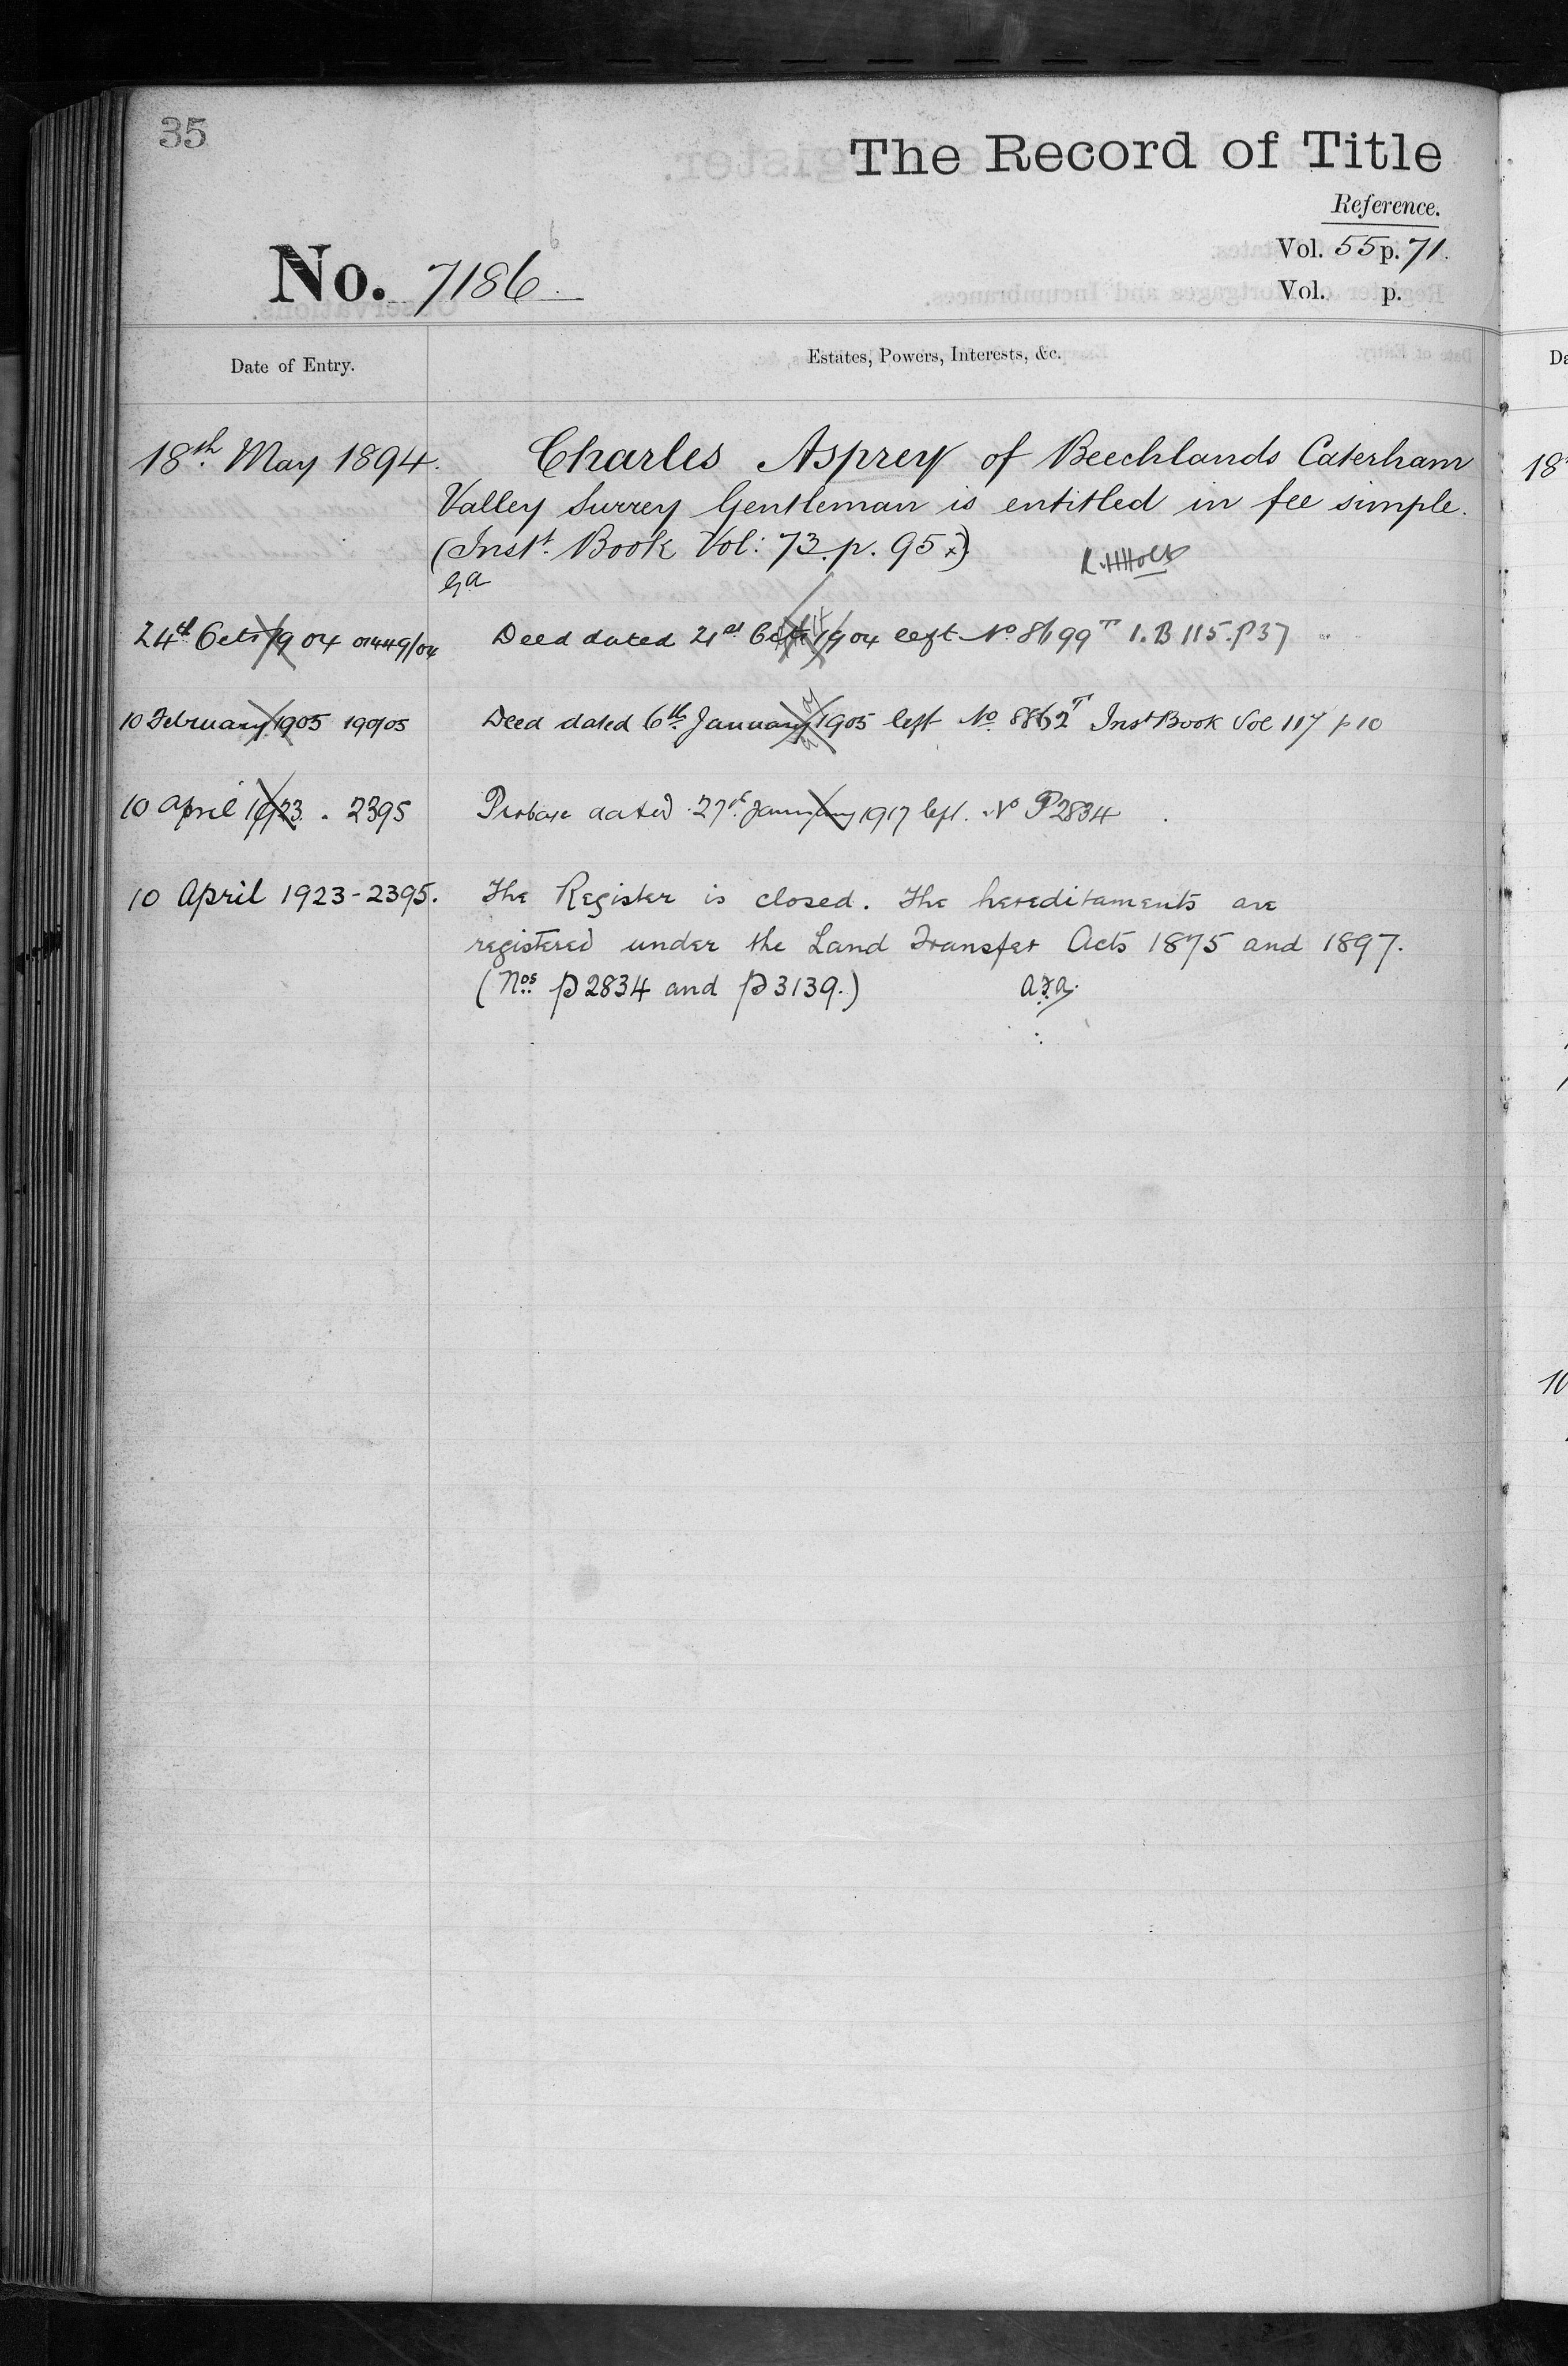 35
The Record of Title
Reference.
No. 7186.
Vol. 55 p. 71.
Vol. p.
Date of Entry.
Estates, Powers, Interests, &c.
18th May 1894.
Charles Asprey of Beechlands Caterham
Valley Surrey Gentleman is entitled in fee simple.
(Instt. Book Vol: 73. p. 95 x)
R.HHolt
24th Octr 1904
Deed dated 21st Octr 1904 left No 8699T I.B 115. P 37
10 February 1905 190/05
Deed dated 6th January 1905 left No 8862T Inst Book Vol 117 p 10
10 April 1923. 2395
Probate dated 27th January 1917 left. No P2834
10 April 1923-2395.
The Register is closed. The hereditaments are
registered under the Land Transfer Acts 1875 and 1897.
(Nos P2834 and P3139.)
Da
18
10